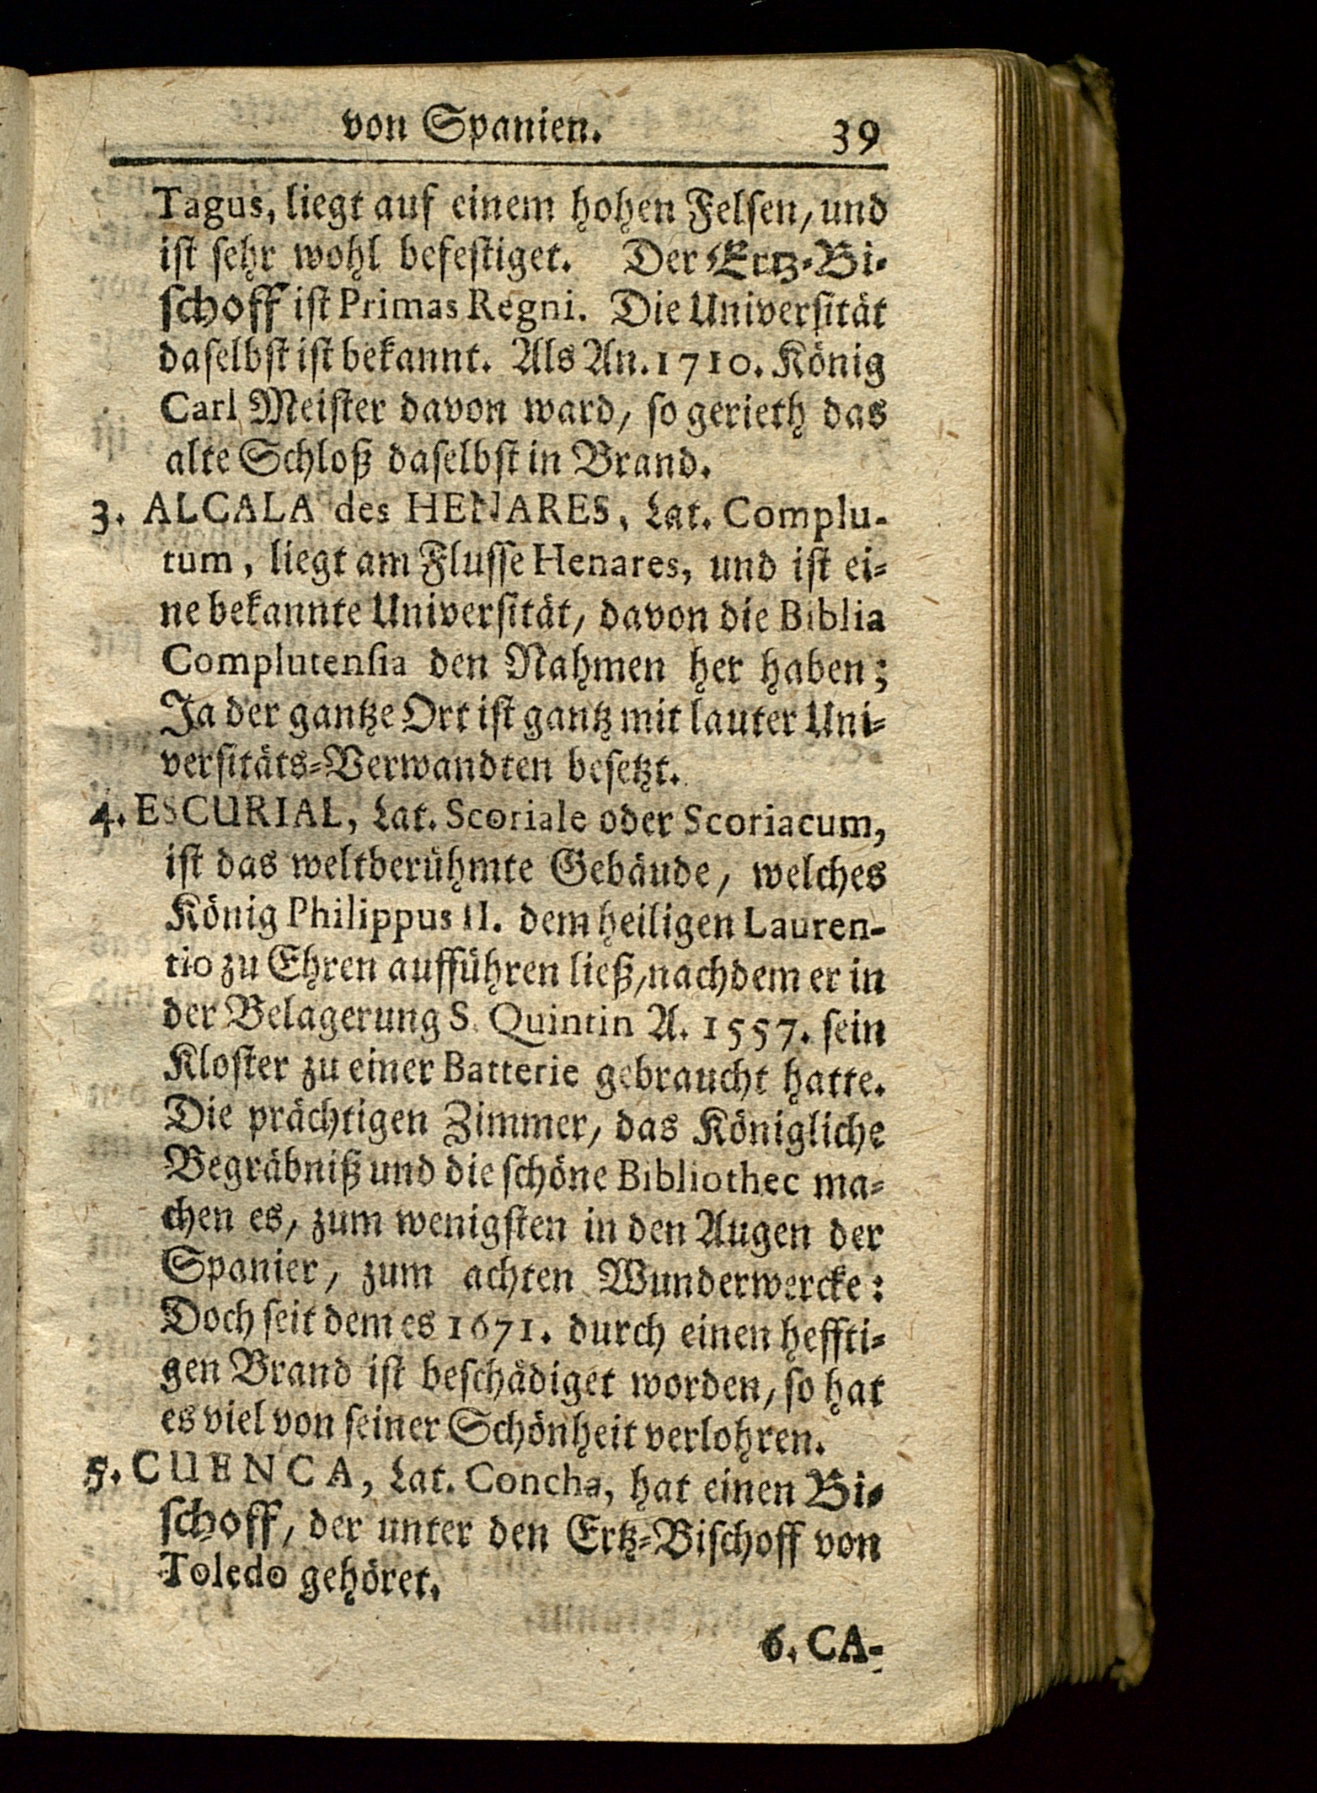 von Spanien. 39
Tagus, liegt auf einem hohen Felsen, und
ist sehr wohl befestiget. Der Ertz-Bi-
schoff ist Primas Regni. Die Universität
daselbst ist bekannt. Als An. 1710. König
Carl Meister davon ward, so gerieth das
alte Schloß daselbst in Brand.
3. ALCALA des HENARES, Lat. Complu-
tum, liegt am Flusse Henares, und ist ei-
ne bekannte Universität, davon die Biblia
Complutensia den Nahmen her haben;
Ja der gantze Ort ist gantz mit lauter Uni-
versitäts-Verwandten besetzt.
4. ESCURIAL, Lat. Scoriale oder Scoriacum,
ist das weltberühmte Gebäude, welches
König Philippus II. dem heiligen Lauren-
tio zu Ehren aufführen ließ, nachdem er in
der Belagerung S. Quintin A. 1557. sein
Kloster zu einer Batterie gebraucht hatte.
Die prächtigen Zimmer, das Königliche
Begräbniß und die schöne Bibliothec ma-
chen es, zum wenigsten in den Augen der
Spanier, zum achten Wunderwercke:
Doch seit dem es 1671. durch einen heffti-
gen Brand ist beschädiget worden, so hat
es viel von seiner Schönheit verlohren.
5. CUENCA, Lat. Concha, hat einen Bi-
schoff, der unter den Ertz-Bischoff von
Toledo gehöret.
6. CA-